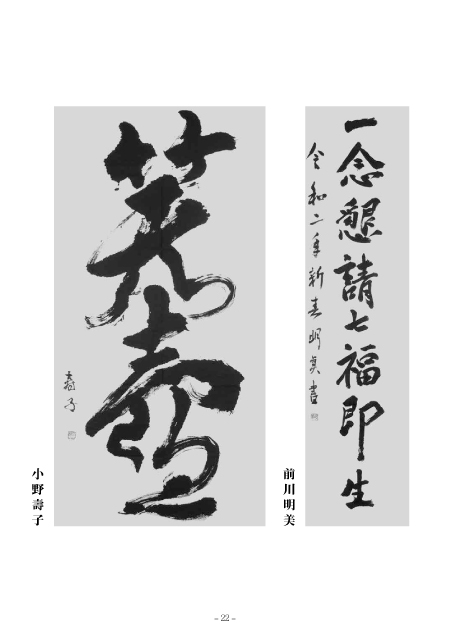 一念懇請七福即生
令和二年新春明美書
前川明美
笑壷
壽子
小野壽子
– 22 –